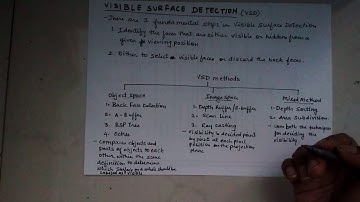 VISIBLE SURFACE DETECTION (VSD)
- There are 2 fundamental steps in Visible Surface Detection
1. Identify the faces that are either visible or hidden from a
given viewing position
2. Either to select visible face or discard the back faces.
VSD methods
Object space
1- Back Face Detection
2- A-Buffer
3- BSP Tree
4- Octree
- compares objects and
parts of objects to each
other within the scene
definition to determine
which surfaces as a whole should be
labeled as visible
Image space
1- Depth Buffer/Z-buffer
2- Scan Line
3- Ray Casting
- Visibility is decided point
by point at each pixel
position on the projection
plane
Mixed Method
1- Depth Sorting
2- Area Subdivision
- use both the techniques
for deciding the
visibility